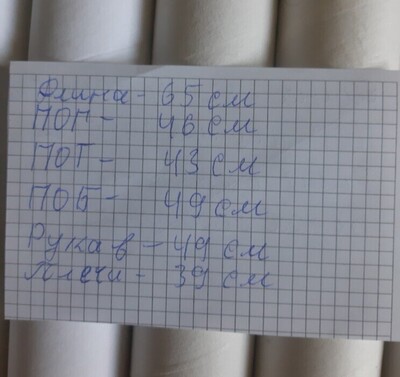 Длина - 65 см
ПОГ - 46 см
ПОТ - 43 см
ПОБ - 49 см
Рукав - 49 см
Плечи - 39 см